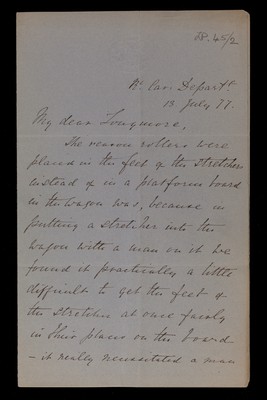 58. 45/2
Rl Car: Departt
13 July 77.
My dear Longmore,
The reason rollers were
placed in the feet of the stretcher
instead of in a platform board
in the wagon was, because in
putting a stretcher into the
wagon with a man on it we
found it practically a little
difficult to get the feet of
the stretcher at once fairly
in their places on the board
- it really necessitated a man